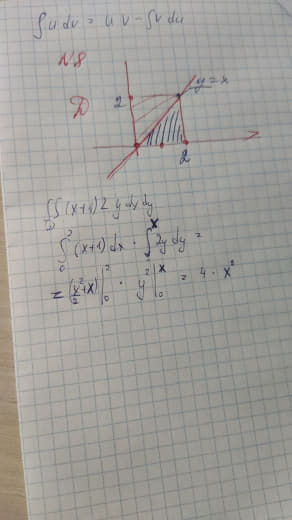 ∫u dv = u v - ∫v du
N8
D
2
y = x
2
∬ (x+1) 2 y dx dy
D
∫₀² (x+1) dx · ∫ˣ 2y dy =
= (x²/2 + x) |₀² · y² |₀ˣ = 4 · x²